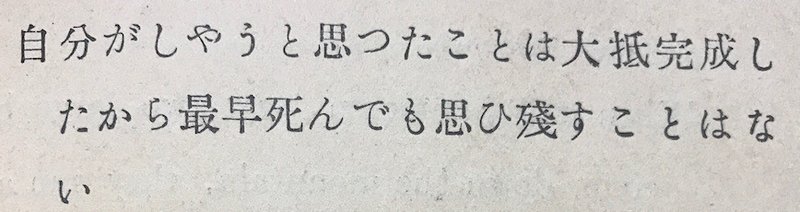 自分がしやうと思つたことは大抵完成し
たから最早死んでも思ひ殘すことはな
い